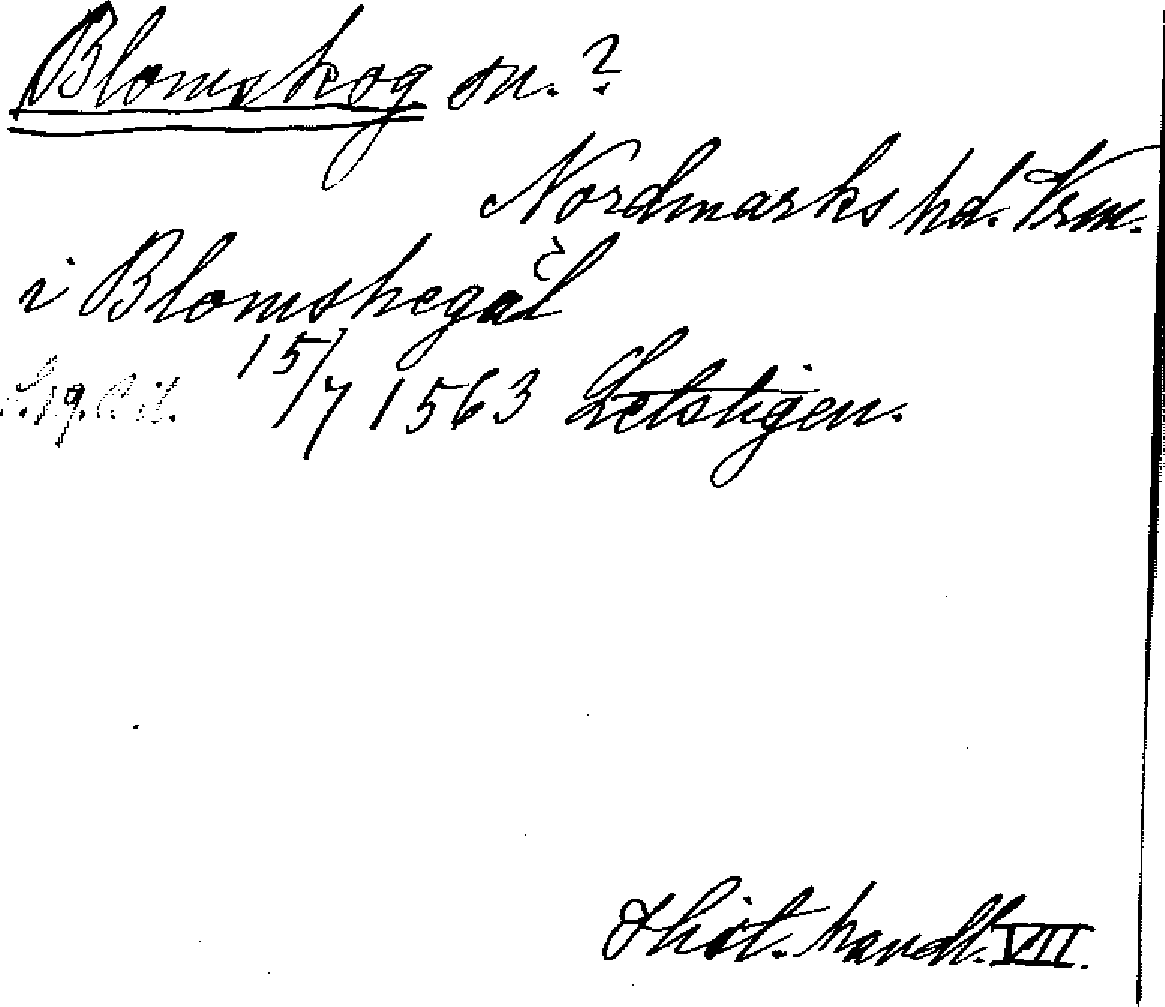 Blomskog sn. ?
Nordmarks hd. Vrm.
i Blomskegål
15/7 1563 Letstigen.
Hist. handl. VII.